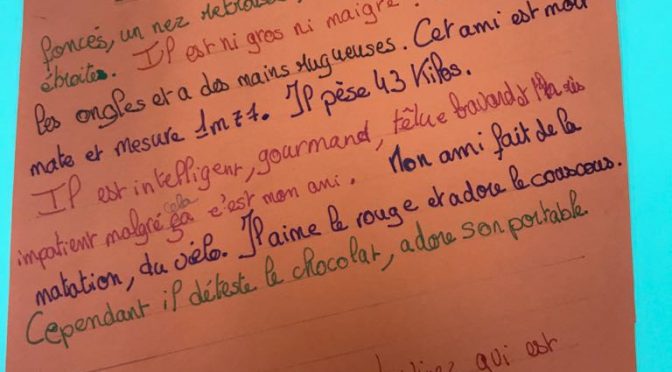 foncés, un nez retroussé,
étroites. Il est ni gros ni maigre.
les ongles et a des mains rugueuses. Cet ami est
mate et mesure 1m71. Il pèse 43 Kilos.
Il est intelligent, gourmand, têtue bavard et
impatient malgré ça cela c'est mon ami. Mon ami fait de la
natation, du vélo. Il aime le rouge et adore le couscous.
Cependant il déteste le chocolat, adore son portable
qui est